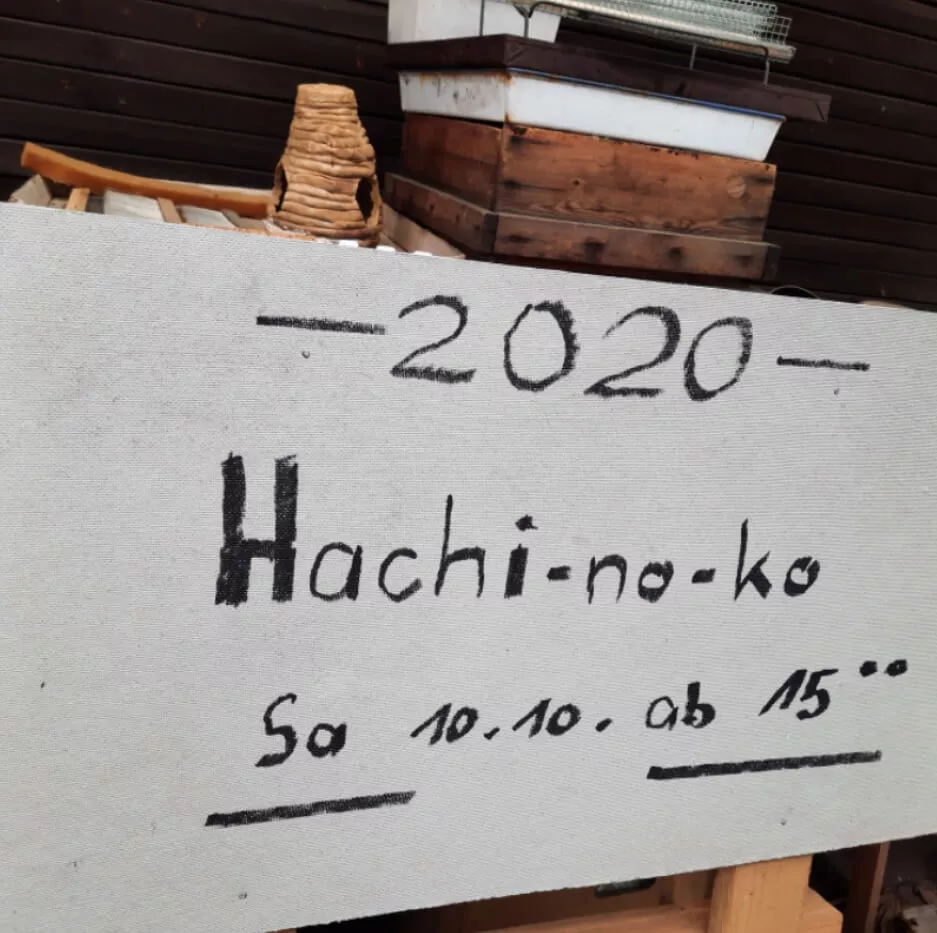 -2020-
Hachi-no-ko
Sa 10.10. ab 15°°